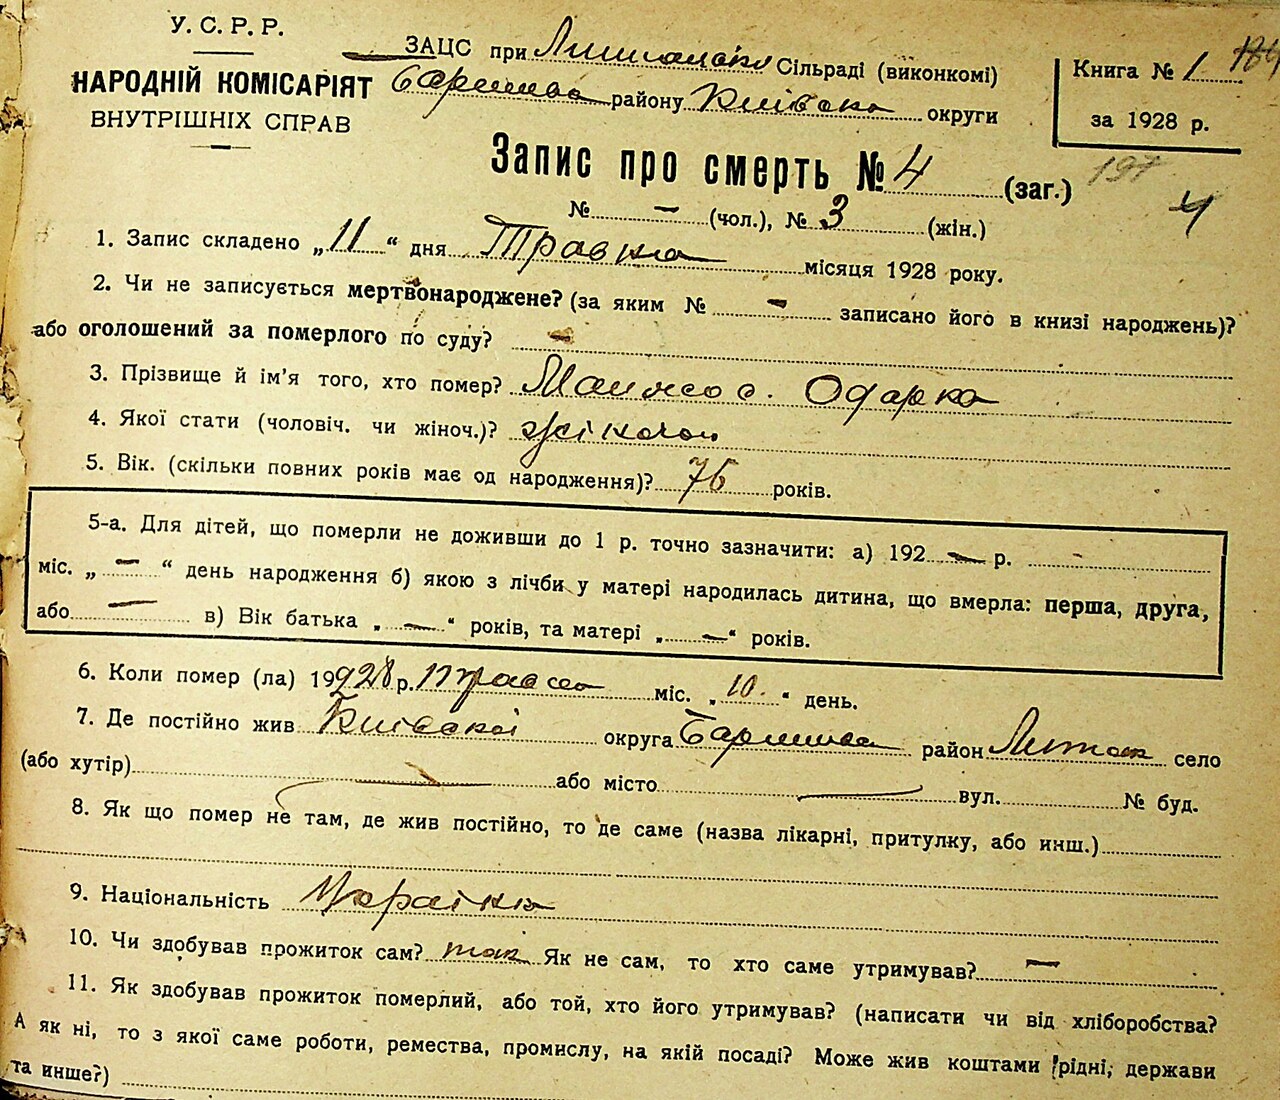 У. С. Р. Р.
НАРОДНІЙ КОМІСАРІЯТ
ВНУТРІШНІХ СПРАВ
ЗАЦС при Сільраді (виконкомі)
району Київска округи
Книга № 1 184
за 1928 р.
197
4
Запис про смерть № 4 (заг.)
№ — (чол.), № 3 (жін.)
1. Запис складено „11“ дня Травня місяця 1928 року.
2. Чи не записується мертвонароджене? (за яким № — записано його в книзі народжень)?
або оголошений за померлого по суду? —
3. Прізвище й ім'я того, хто помер? Одарка
4. Якої статі (чоловіч. чи жіноч.)? жіночої
5. Вік. (скільки повних років має од народження)? 76 років.
5-а. Для дітей, що померли не доживши до 1 р. точно зазначити: а) 192 — р. —
міс. „ — “ день народження б) якою з лічби у матері народилась дитина, що вмерла: перша, друга,
або — в) Вік батька „ — “ років, та матері „ — “ років.
6. Коли помер (ла) 19928 р. травня міс. „10.“ день.
7. Де постійно жив Київскої округа район село
(або хутір) — або місто — вул. № буд.
8. Як що помер не там, де жив постійно, то де саме (назва лікарні, притулку, або инш.)
9. Національність Українка
10. Чи здобував прожиток сам? так Як не сам, то хто саме утримував? —
11. Як здобував прожиток померлий, або той, хто його утримував? (написати чи від хліборобства?
А як ні, то з якої саме роботи, ремества, промислу, на якій посаді? Може жив коштами рідні, держави
та инше?)